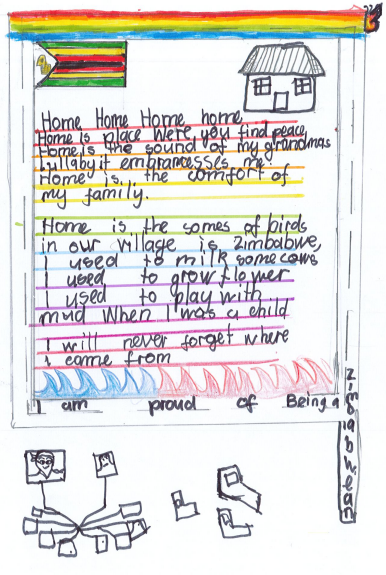 Home Home Home home
Home is place were you find peace,
Home is the sound of my grandmas
lullaby it embrancesses me.
Home is the comfort of
my family.
Home is the somes of birds
in our village is Zimbabwe,
I used to milk some cows
I used to grow flower
I used to play with
mud When I was a child
I will never forget where
i came from
I am proud of Being a